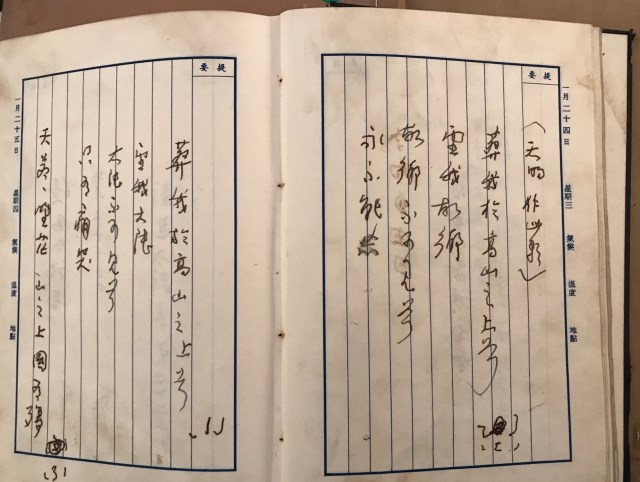 一月二十四日 星期三 氣候 溫度 地點
提要
(天明作此歌)
葬我於高山之上兮
望我故鄉
故鄉不可見兮
永不能忘
提要
葬我於高山之上兮
望我大陸
大陸不可見兮
只有痛哭
天蒼、野茫、山之上國有殤
(3)
一月二十五日 星期四 氣候 溫度 地點